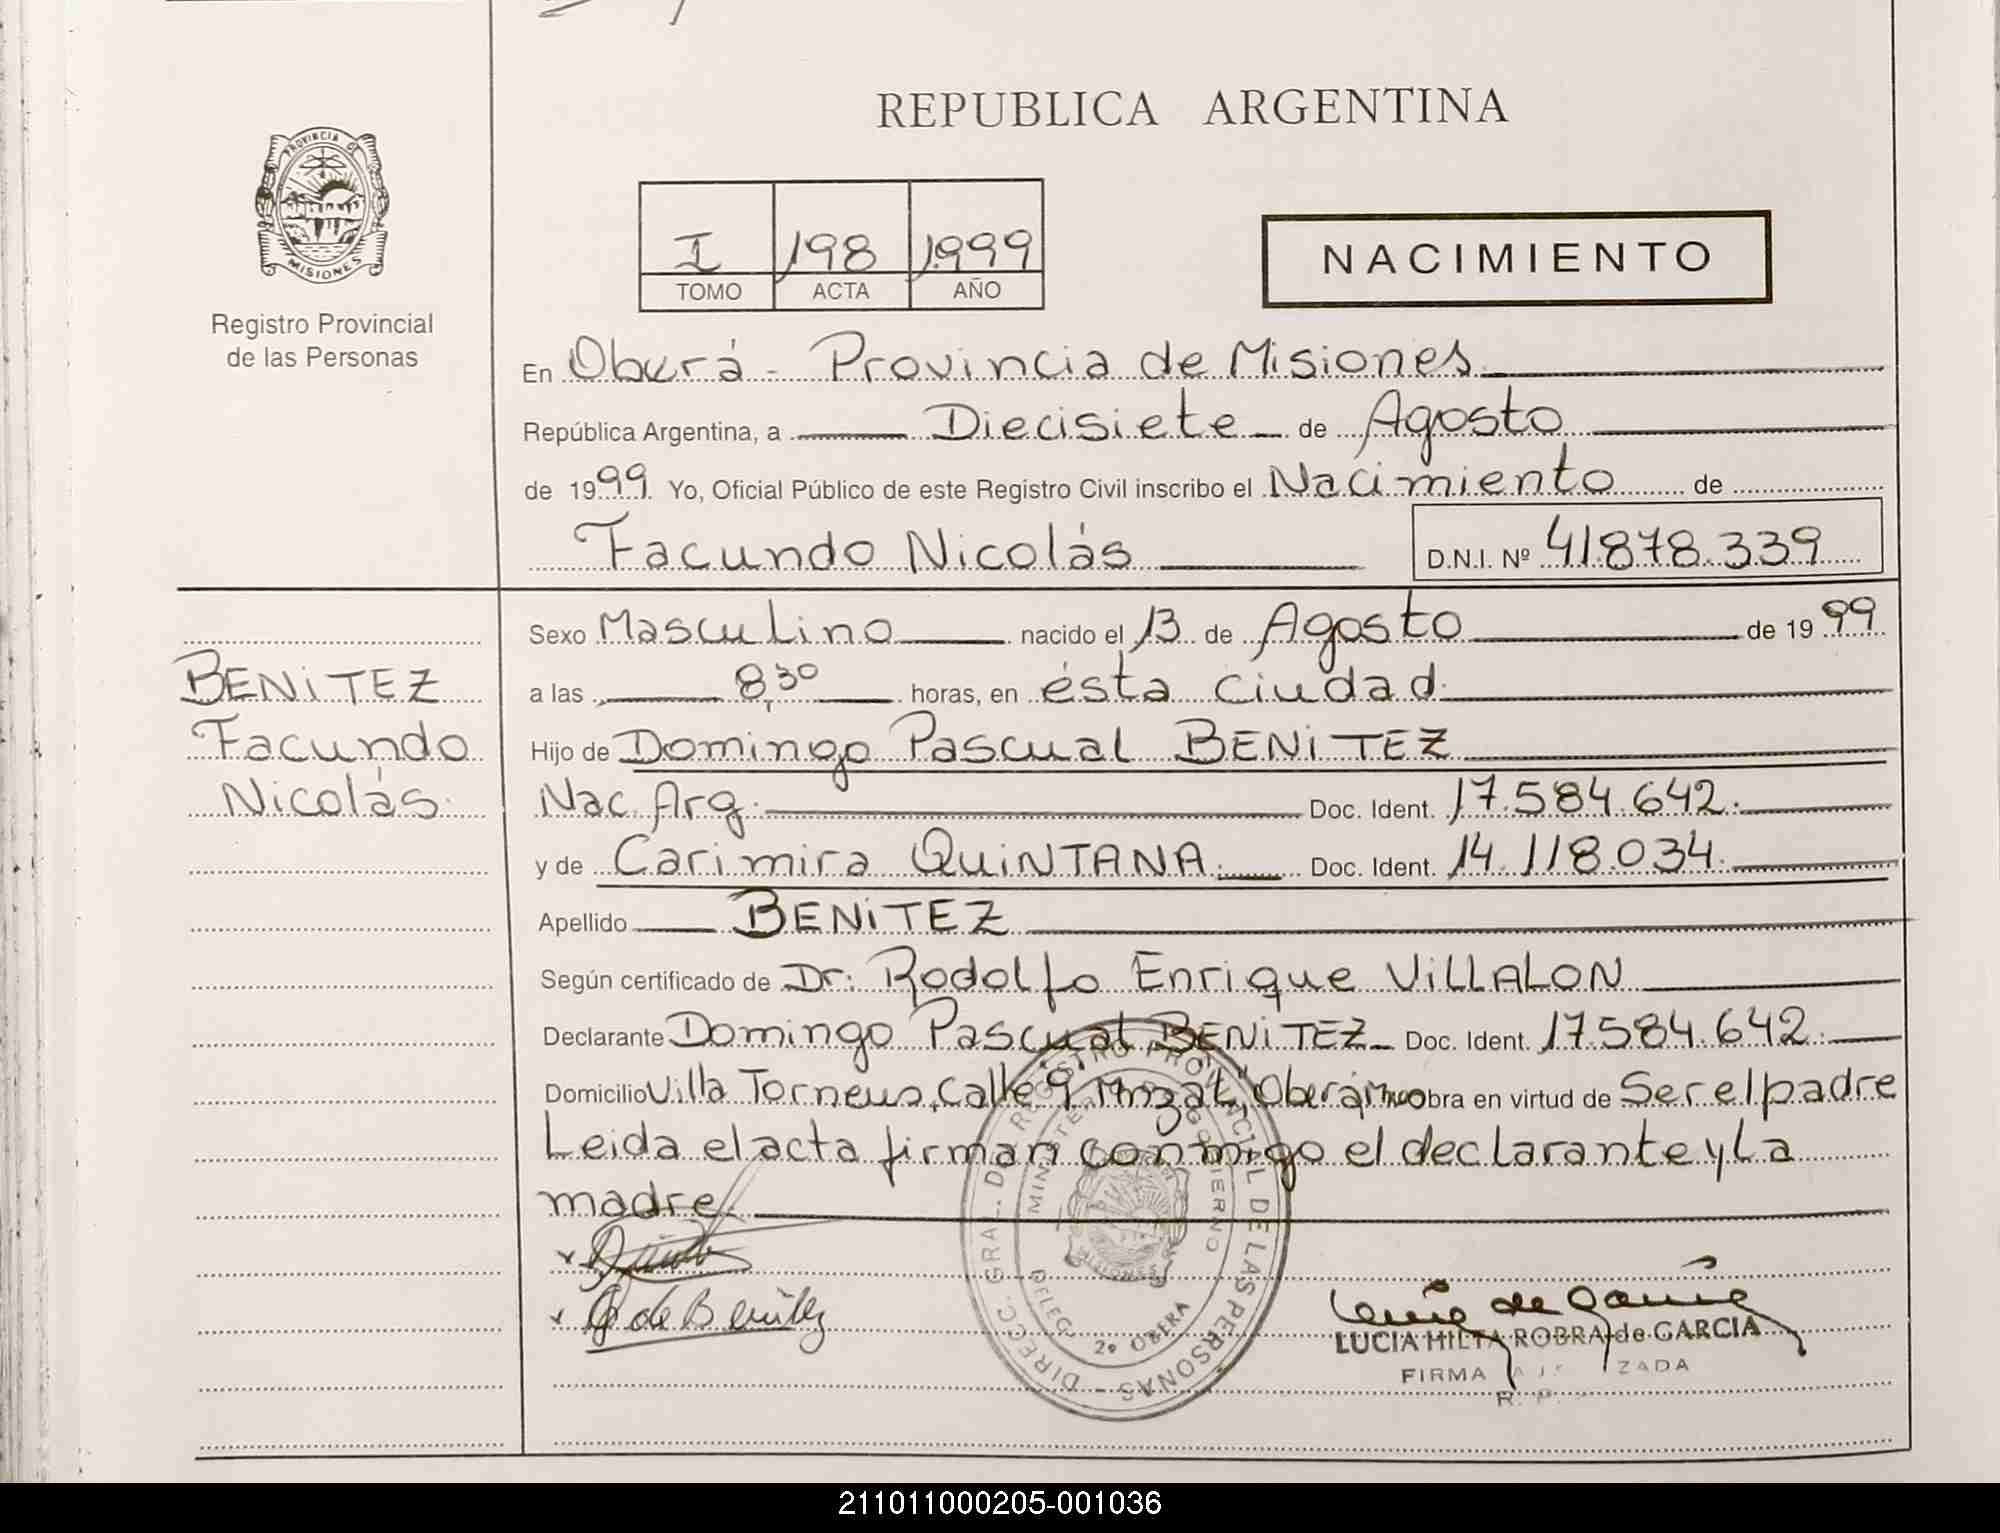 REPUBLICA ARGENTINA
PROVINCIA DE
MISIONES
Registro Provincial
de las Personas
I 198 1999
TOMO ACTA AÑO
NACIMIENTO
En Oberá - Provincia de Misiones
República Argentina, a Diecisiete de Agosto
de 1999 Yo, Oficial Público de este Registro Civil inscribo el Nacimiento de
Facundo Nicolás D.N.I. Nº 41.878.339
BENITEZ
Facundo
Nicolás.
Sexo Masculino nacido el 13 de Agosto de 1999
a las 8,30 horas, en ésta ciudad.
Hijo de Domingo Pascual BENITEZ
Nac. Arg. Doc. Ident. 17.584.642.
y de Carimira QUINTANA. Doc. Ident. 14.118.034.
Apellido BENITEZ
Según certificado de Dr. Rodolfo Enrique VILLALON
Declarante Domingo Pascual BENITEZ Doc. Ident. 17.584.642.
Domicilio Villa Torneus, Calle 9, Oberá, obra en virtud de Ser el padre
Leida el acta firman conmigo el declarante y La
madre.
de Benitez
DIRECC. GRAL. DEL REGISTRO PROVINCIAL DE LAS PERSONAS
MINISTERIO DE GOBIERNO
MISIONES
DELEGAC. 2º OBERA
LUCIA HILTA ROBRA de GARCIA
FIRMA
211011000205-001036